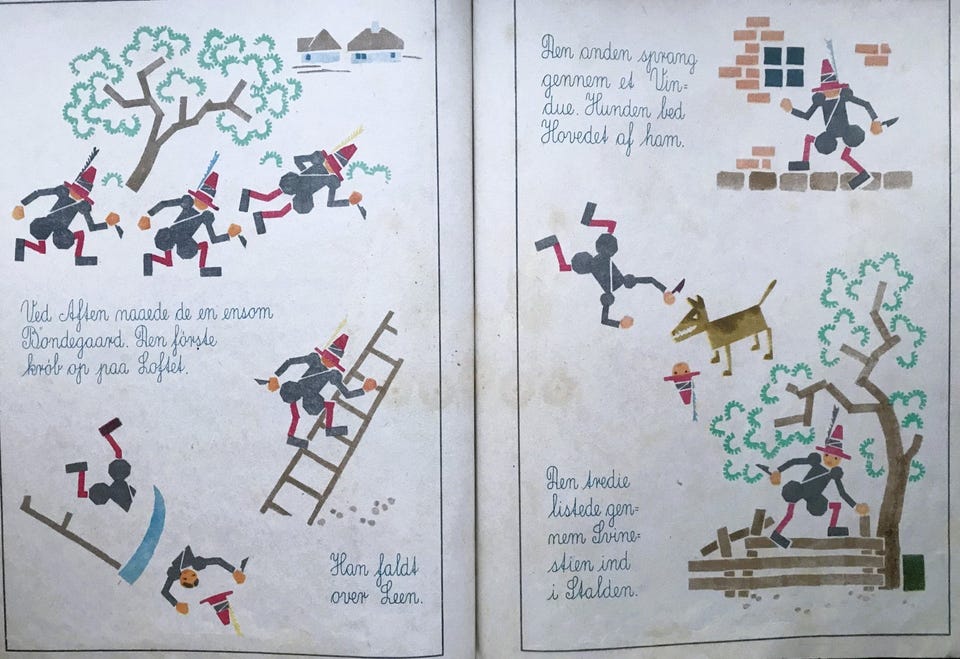 Ved Aften naaede de en ensom
Böndegaard. Den förste
kröb op paa Loftet.
Han faldt
over Leen.
Den anden sprang
gennem et Vin=
due. Hunden bed
Hovedet af ham.
Den tredie
listede gen=
nem Svine=
stien ind
i Stalden.